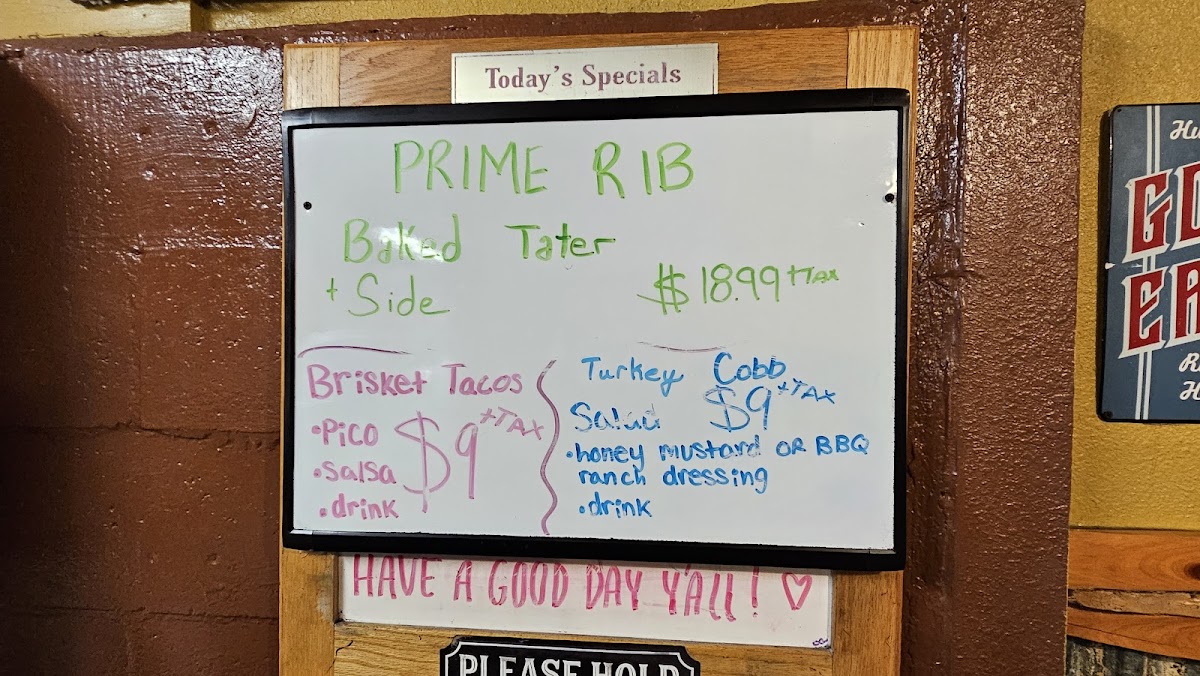 Today's Specials
PRIME RIB
Baked Tater
+ Side
$18.99 +TAX
Brisket Tacos
•PICO
•salsa
•drink
$9 +TAX
Turkey Cobb
Salad $9 +TAX
•honey mustard OR BBQ
ranch dressing
•drink
HAVE A GOOD DAY Y'ALL! ♡
PLEASE HOLD